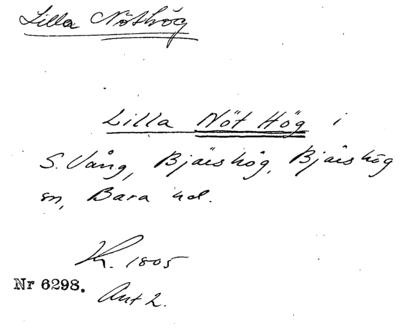 Lilla Nöthög
Lilla Nöt Hög i
S. Vång, Bjäishög, Bjäishög
sn, Bara hd.
Kr. 1805
Nr 6298.
Ant 2.